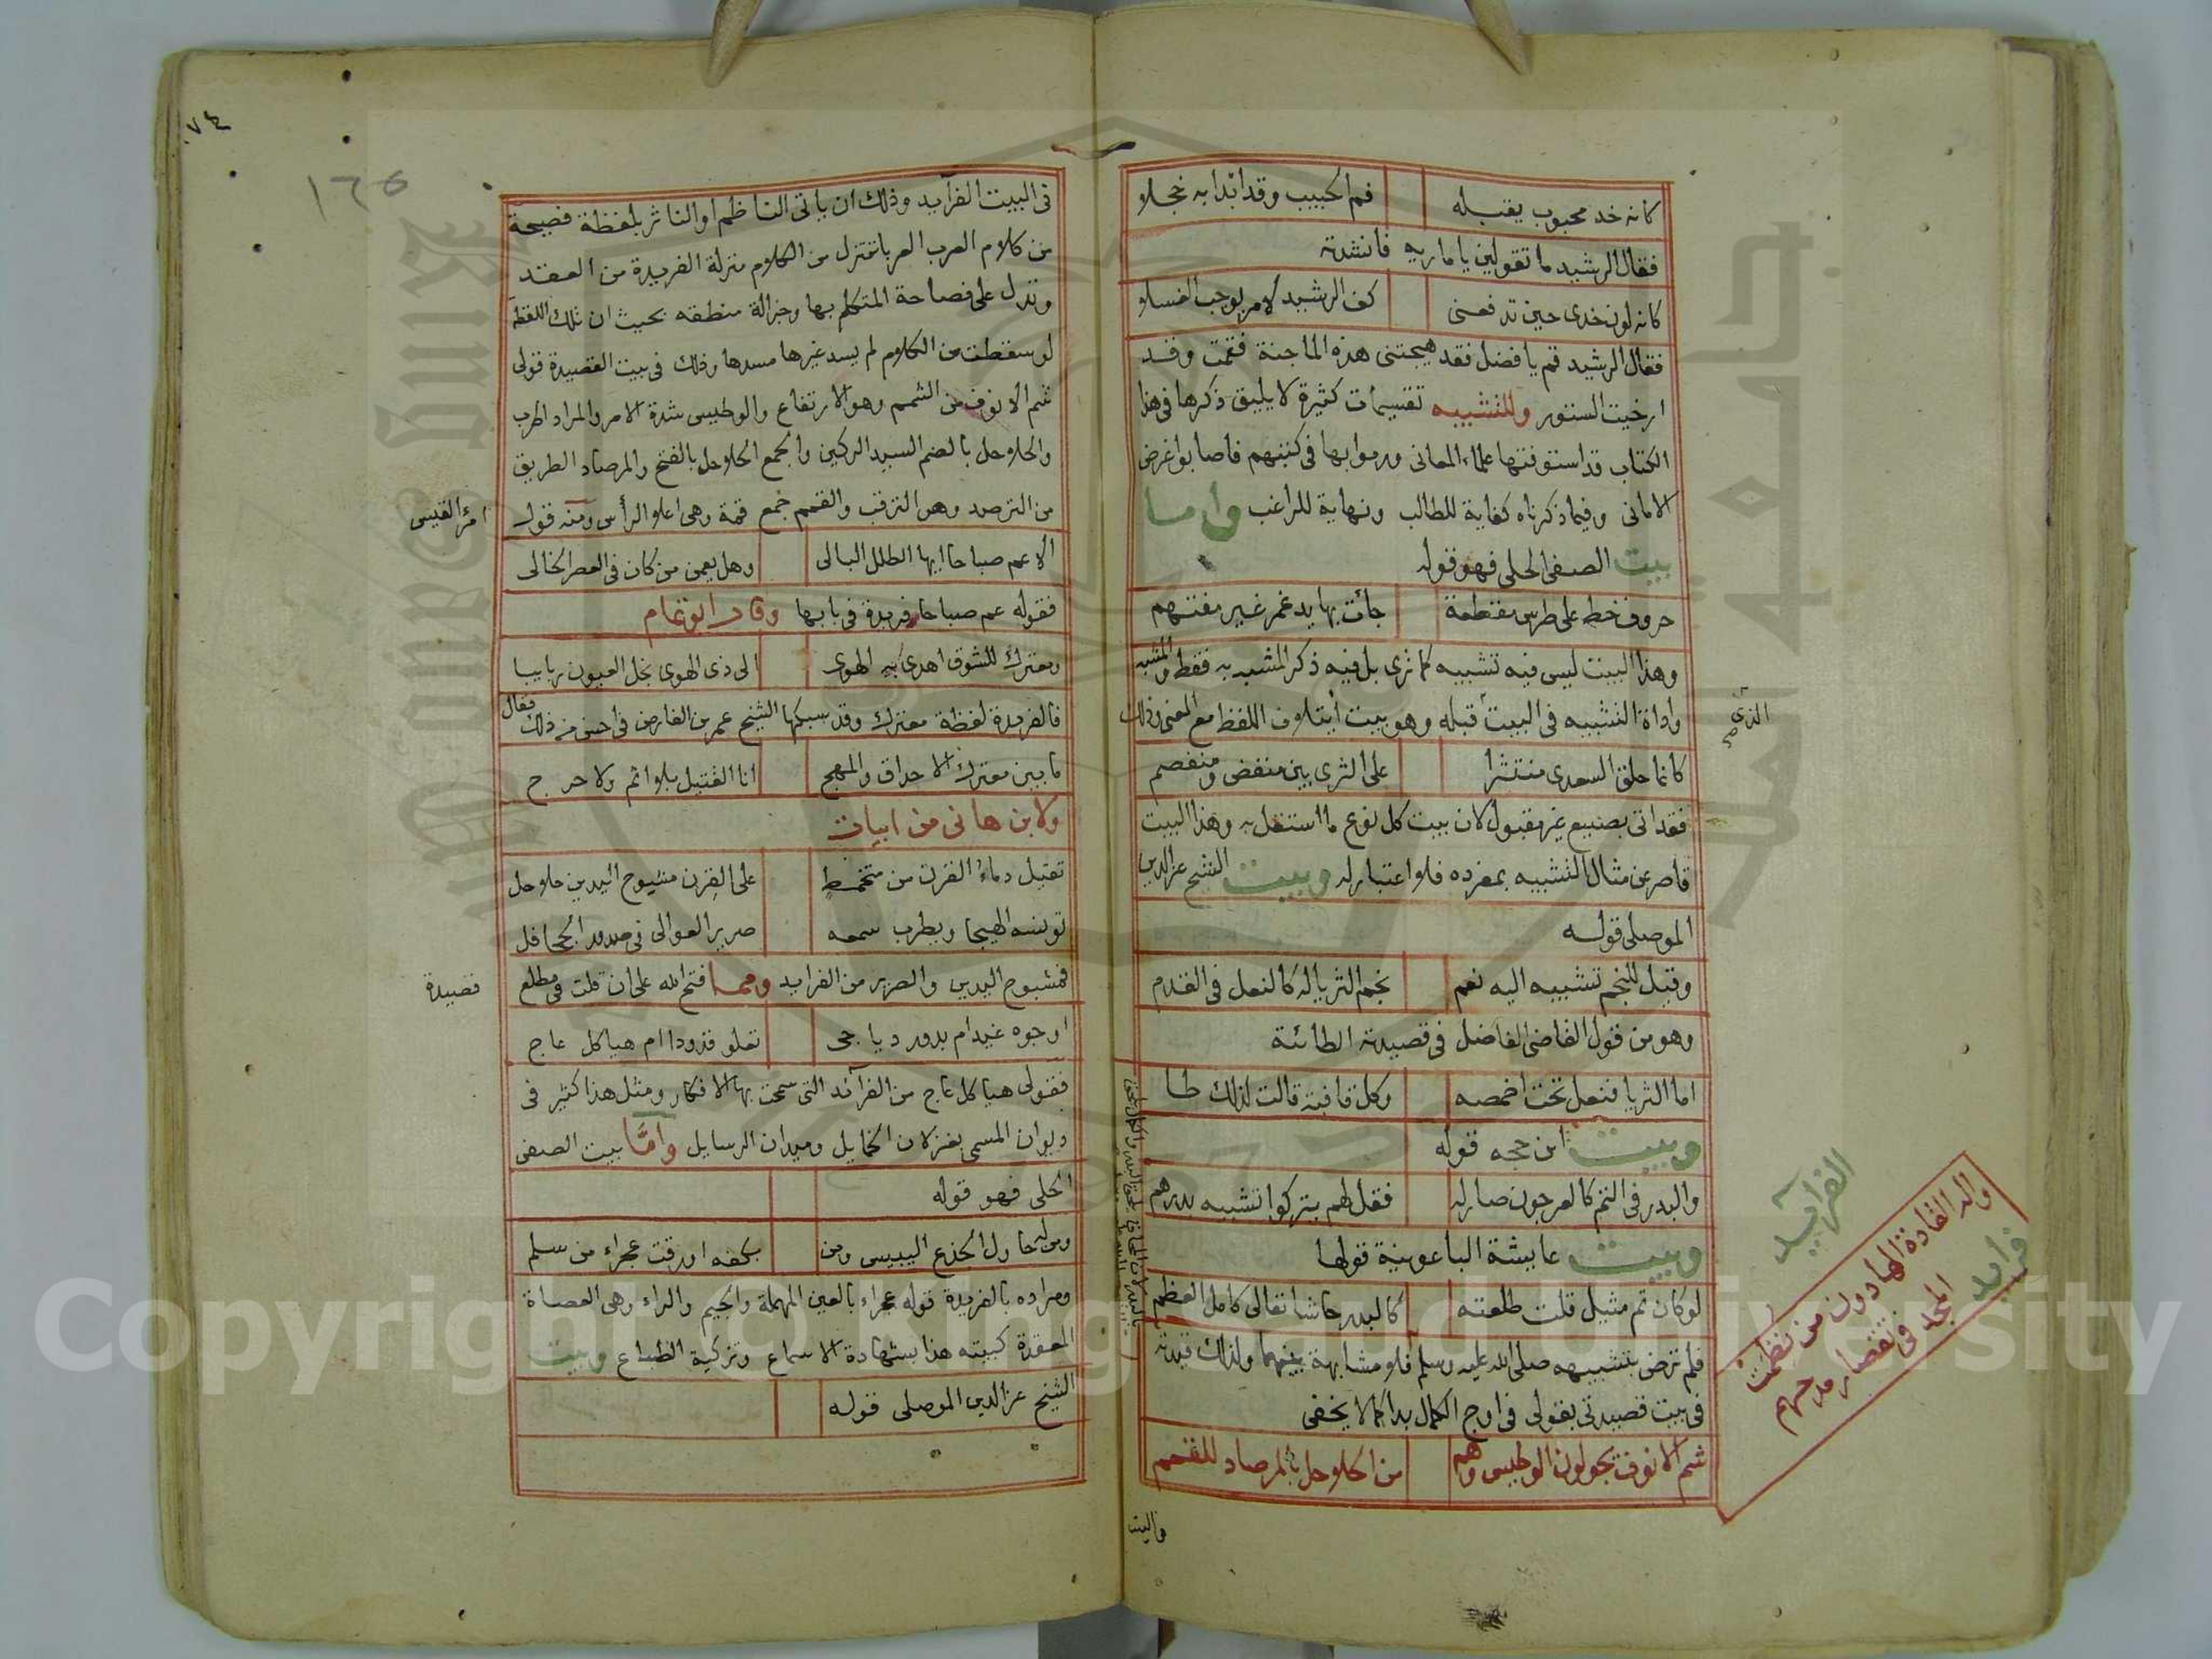 كانه خد محبوب يقبله فم الحبيب وقد ابدا به خجلا
فقال الرشيد ما تقولين يا ماريه فانشدته
كانه لون خدي حين تدفعني كف الرشيد لامر يوجب الغسلا
فقال الرشيد قم يا فضل فقد هيجتني هذه الماجنة فقمت وقد
ارخيت الستور وللتشبيه تقسيمات كثيرة لا يليق ذكرها في هذا
الكتاب قد استوفتها علماء المعاني ورموا بها في كتبهم فاصابوا غرض
الاماني وفيما ذكرناه كفاية للطالب ونهاية للراغب واما
بيت الصفي الحلي فهو قوله
حروف خط على طرس مقطعة جأت بها يد غمر غير مفتهم
وهذا البيت ليس فيه تشبيه كما ترى بل فيه ذكر المشبه به فقط والمشبه
واداة التشبيه في البيت قبله وهو بيت أيتلاف اللفظ مع المعنى وذلك
الذي
كانما حلق السعدي منتثرا على الثرى بين منفض ومنفصم
فقد اتى بصنيع غير مقبول لان بيت كل نوع ما استقل به وهذا البيت
قاصر عن مثال التشبيه بمفرده فلا اعتبار له وبيت الشيخ عز الدين
الموصلي قوله
وقيل للنجم تشبيه اليه نعم نجم الثريا له كالنعل في القدم
وهو من قول القاضي الفاضل في قصيدته الطائئة
اما الثريا فنعل تحت اخمصه وكل قافية قالت لذلك طا
وبيت ابن حجه قوله
والبدر في التم كالعرجون صار له فقل لهم يتركوا تشبيه بدرهم
وبيت عايشة الباعونية قولها
لو كان ثم مثيل قلت طلعته كالبدر حاشا تعالى كامل العظم
فلم ترض بتشبيهه صلى الله عليه وسلم فلا مشابهة بينهما ولذلك قيدته
في بيت قصيدتي بقولي في اوج الكمال بدا كما لا يخفى
شم الانوف يجولون الوطيس وهم من الحلاحل بالمرصاد للقحم
الفرايد
والد القادة الهادون من نظمت
فرايد المجد في تقصار مدحهم
في البيت
١٦٥
٧٤
في البيت الفرآيد وذلك ان ياتي الناظم او الناثر بلفظة فصيحة
من كلام العرب العرباتتنزل من الكلام منزلة الفريدة من العقد
وتدل على فصاحة المتكلم بها وجزالة منطقه بحيث ان تلك اللفظة
لو سقطت من الكلام لم يسد غيرها مسدها وذلك في بيت القصيدة قولي
شم الانوف من الشمم وهو الارتفاع والوطيس شدة الامر والمراد الحرب
والحلاحل بالضم السيد الركين والجمع الحلاحل بالفتح والمرصاد الطريق
من الترصد وهو الترقب والقمم جمع قمة وهي اعلا الرأس ومنه قول
امرئ القيس
الا عم صباحا ايها الطلل البالي وهل يعمن من كان في العصر الخالي
فقوله عم صباحا فريدة في بابها وقال ابو تمام
ومعترك للشوق اهدى به الهوى الى ذي الهوى نجل العيون ربايبا
فالفريدة لفظة معترك وقد سبكها الشيخ عمر بن الفارض في احسن من ذلك فقال
ما بين معترك الاحداق والمهج انا القتيل بلا اثم ولا حرج
ولابن هاني من ابيات
تقتيل دماء القرن من متخمط على القرن مشبوح اليدين حلاحل
تونسه الهيجا ويطرب سمعه صرير العوالي في صدور الجحافل
فمشبوح اليدين والصرير من الفرايد ومما فتح الله على ان قلت في مطلع
قصيدة
اوجوه غيد ام بدور دياجي تعلو قدودا ام هياكل عاج
فقولي هياكل عاج من الفرآئد التي سمحت بها الافكار ومثل هذا كثير في
ديوان المسمى بغزلان الخمايل وميدان الرسايل وامَّا بيت الصفي
الحلي فهو قوله
ومن له حاول الجذع اليبيس ومن بكفه اورقت عجراء من سلم
ومراده بالفريدة قوله عجراء بالعين المهملة والجيم والراء وهي العصاة
المعقدة كبيته هذا بشهادة الاسماع وتزكية الطباع وبيت
الشيخ عز الدين الموصلي قوله
Copyright © King Saud University